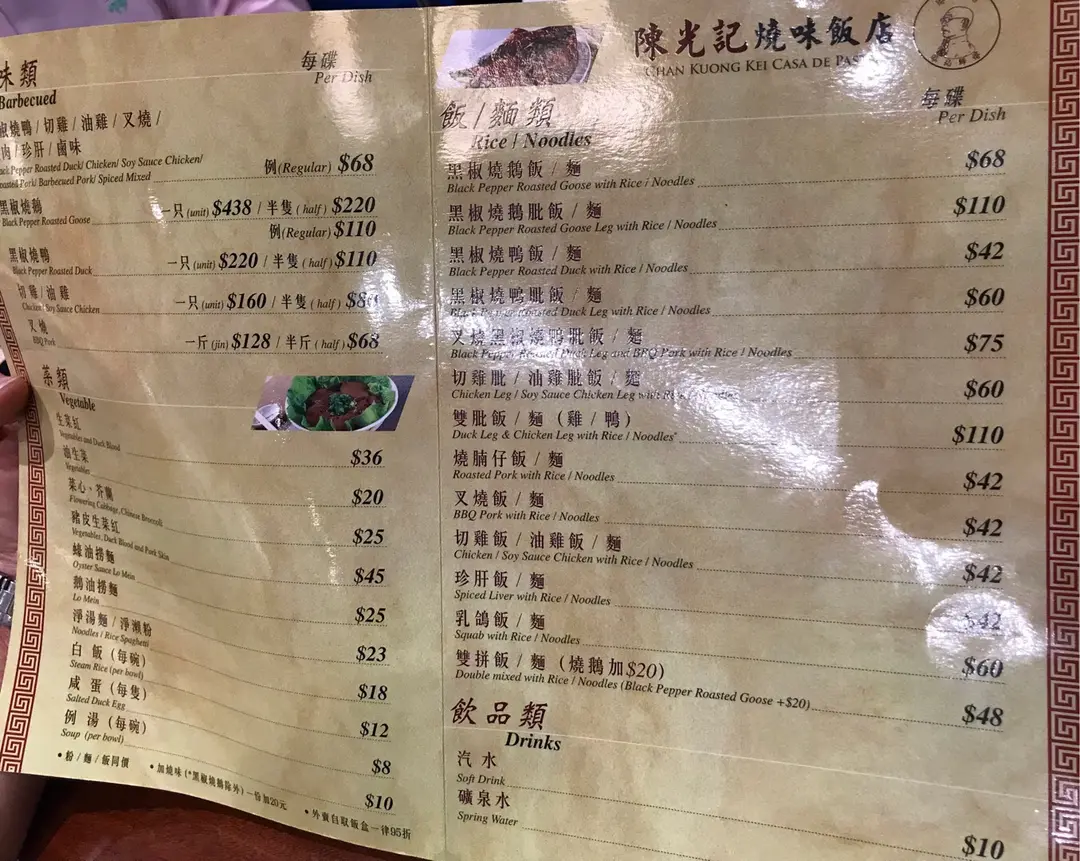 味類
Barbecued
每碟
Per Dish
椒燒鴨 / 切雞 / 油雞 / 叉燒 /
肉 / 珍肝 / 鹵味
Pepper Roasted Duck/ Chicken/ Soy Sauce Chicken/
Pork/ Barbecued Pork/ Spiced Mixed
例(Regular) $68
黑椒燒鵝
Black Pepper Roasted Goose
一只(unit) $438 / 半隻(half) $220
例(Regular) $110
黑椒燒鴨
Black Pepper Roasted Duck
一只(unit) $220 / 半隻(half) $110
切雞 / 油雞
Chicken/ Soy Sauce Chicken
一只(unit) $160 / 半隻(half)
叉燒
BBQ Pork
一斤(jin) $128 / 半斤(half) $68
菜類
Vegetable
生菜紅
Vegetables and Duck Blood
$36
油生菜
Vegetables
$20
菜心、芥蘭
Flowering Cabbage, Chinese Broccoli
$25
豬皮生菜紅
Vegetables, Duck Blood and Pork Skin
$45
蠔油撈麵
Oyster Sauce Lo Mein
$25
鵝油撈麵
Lo Mein
$23
淨湯麵 / 淨瀨粉
Noodles / Rice Spaghetti
$18
白飯（每碗）
Steam Rice (per bowl)
$12
咸蛋（每隻）
Salted Duck Egg
$8
例湯（每碗）
Soup (per bowl)
$10
• 粉 / 麵 / 飯同價
• 加燒味 (*黑椒燒鵝除外) 一份加20元
• 外賣自取飯盒一律95折
陳光記燒味飯店
CHAN KUONG KEI CASA DE
飯/麵類
Rice / Noodles
每碟
Per Dish
黑椒燒鵝飯 / 麵
Black Pepper Roasted Goose with Rice / Noodles
$68
黑椒燒鵝髀飯 / 麵
Black Pepper Roasted Goose Leg with Rice / Noodles
$110
黑椒燒鴨飯 / 麵
Black Pepper Roasted Duck with Rice / Noodles
$42
黑椒燒鴨髀飯 / 麵
Black Pepper Roasted Duck Leg with Rice / Noodles
$60
叉燒黑椒燒鴨髀飯 / 麵
Black Pepper Roasted Duck Leg and BBQ Pork with Rice / Noodles
$75
切雞髀 / 油雞髀飯 / 麵
Chicken Leg / Soy Sauce Chicken Leg with Rice / Noodles
$60
雙髀飯 / 麵（雞 / 鴨）
Duck Leg & Chicken Leg with Rice / Noodles
$110
燒腩仔飯 / 麵
Roasted Pork with Rice / Noodles
$42
叉燒飯 / 麵
BBQ Pork with Rice / Noodles
$42
切雞飯 / 油雞飯 / 麵
Chicken / Soy Sauce Chicken with Rice / Noodles
$42
珍肝飯 / 麵
Spiced Liver with Rice / Noodles
$42
乳鴿飯 / 麵
Squab with Rice / Noodles
$60
雙拼飯 / 麵（燒鵝加$20)
Double mixed with Rice / Noodles (Black Pepper Roasted Goose +$20)
$48
飲品類
Drinks
汽水
Soft Drink
$10
礦泉水
Spring Water